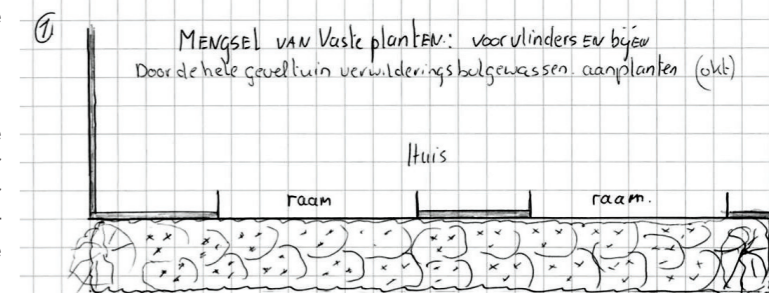 ①
MENGSEL VAN Vaste planten: voor vlinders EN bijen
Door de hele geveltuin verwilderingsbolgewassen. aanplanten (okt)
Huis
raam
raam.